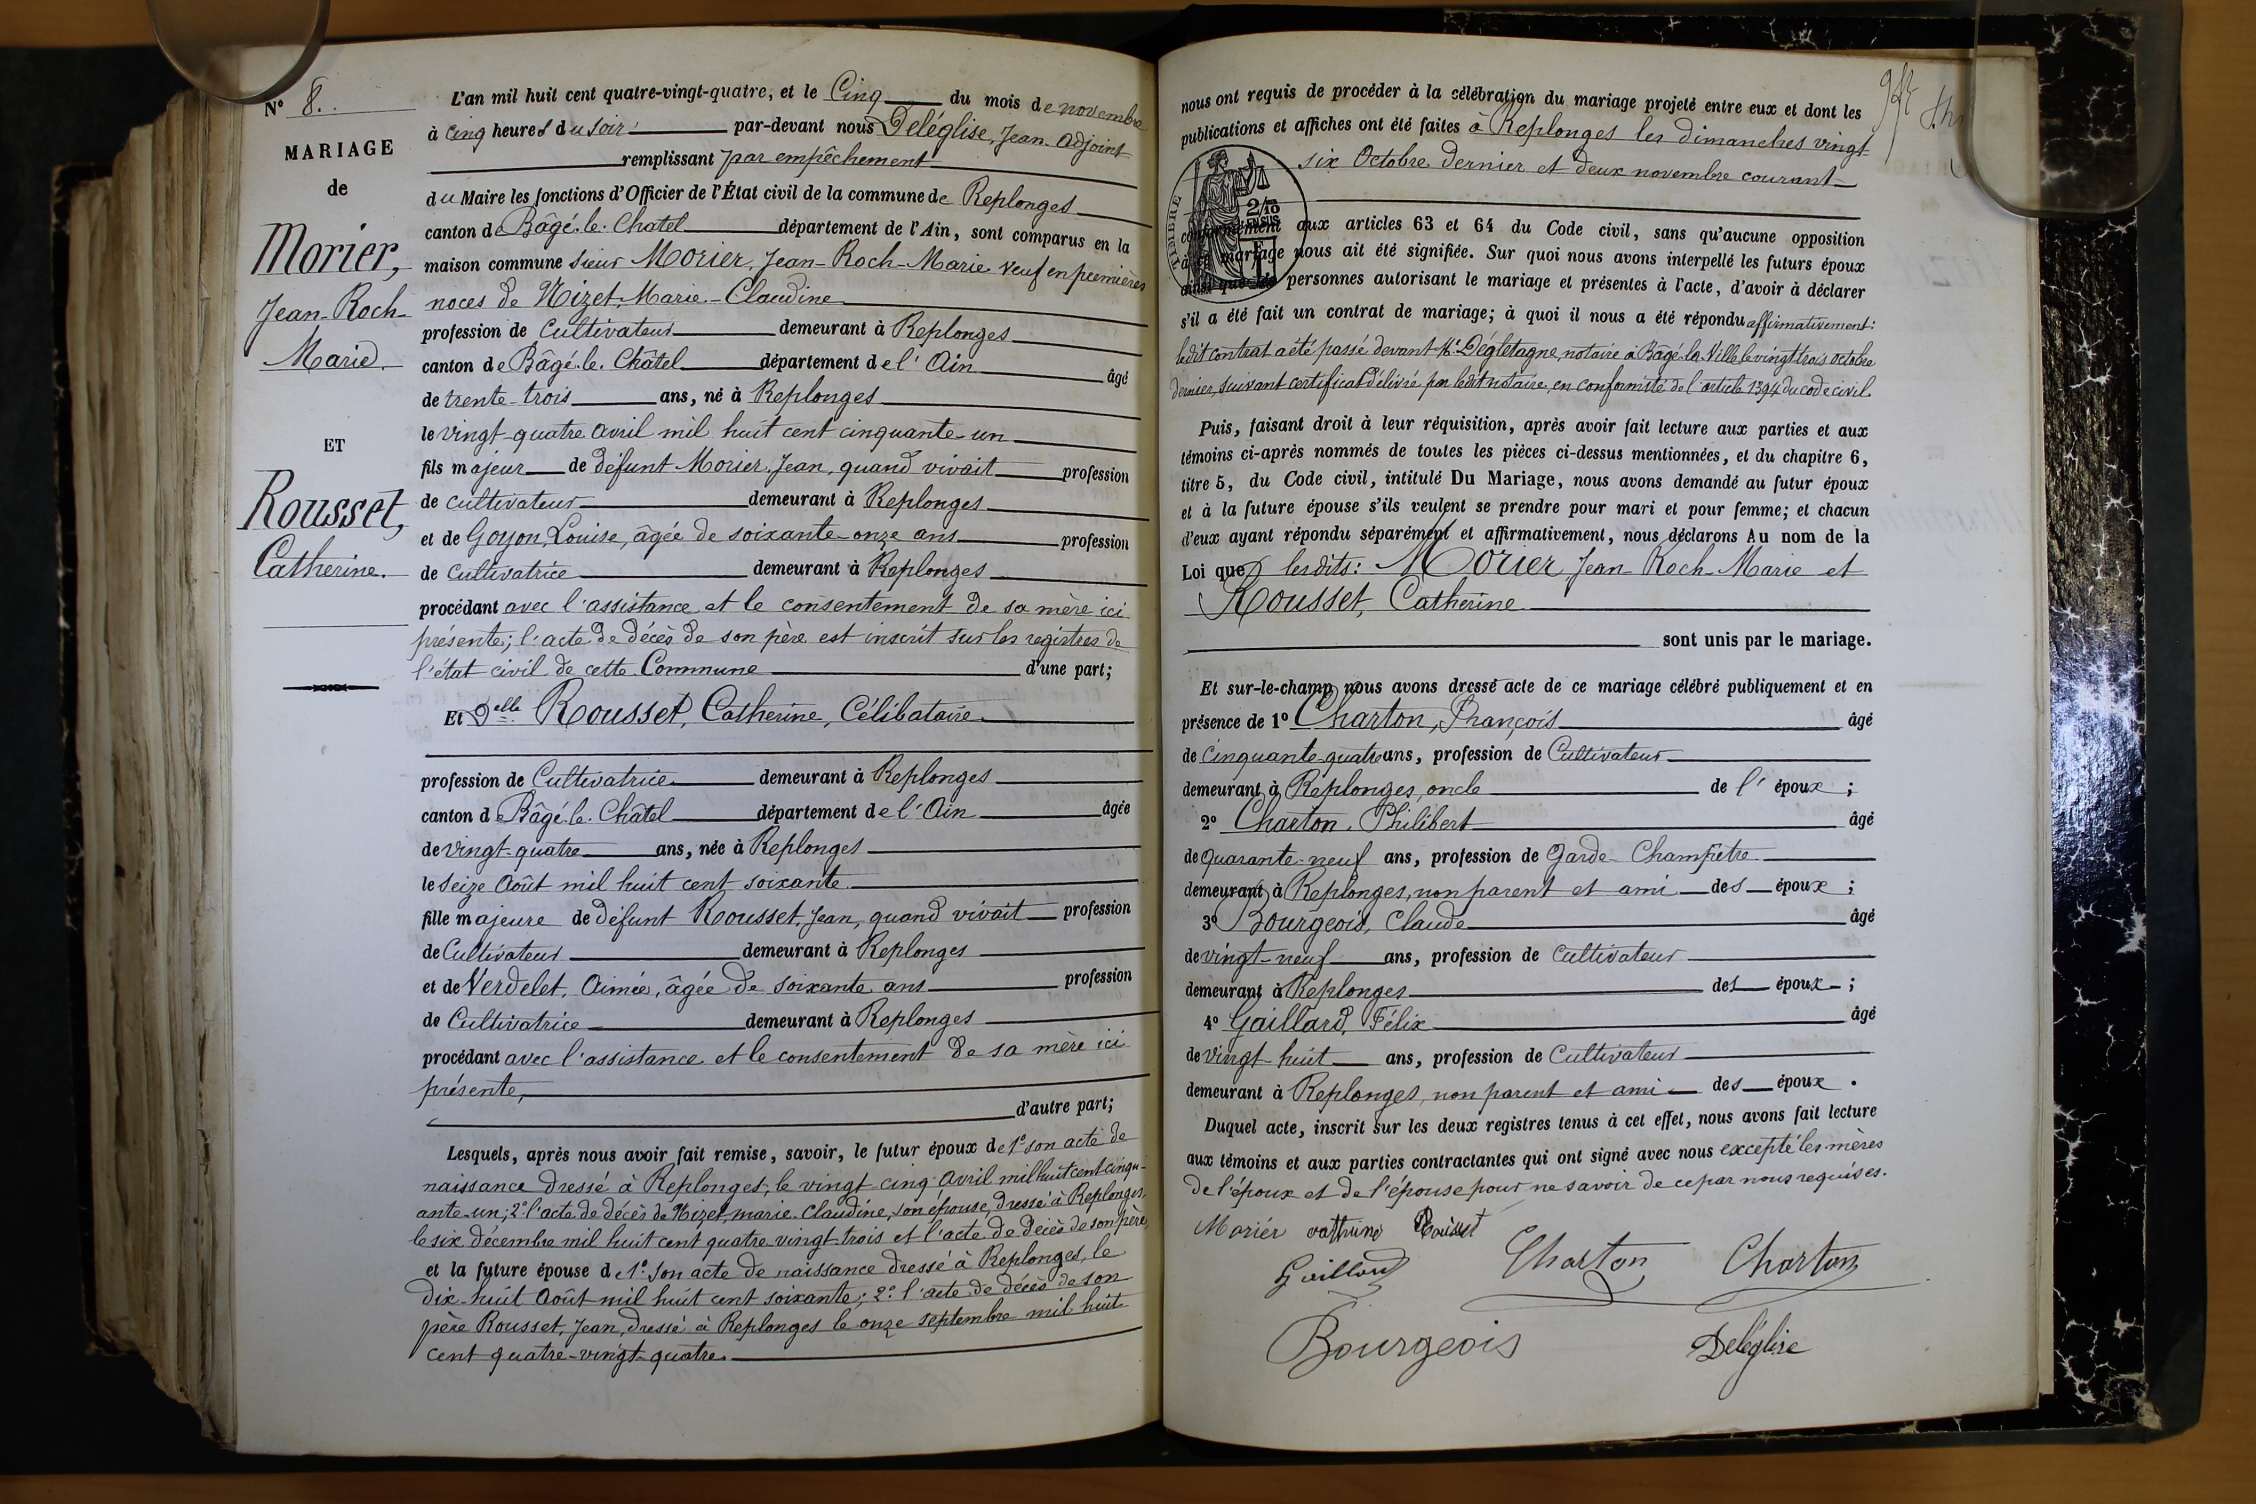 N° 8.
MARIAGE
de
Morier,
Jean-Roch-
Marie.
ET
Rousset,
Catherine.
L'an mil huit cent quatre-vingt-quatre, et le Cinq du mois de novembre
à cinq heures du soir par-devant nous Deléglise, Jean. Adjoint
remplissant par empêchement
du Maire les fonctions d'Officier de l'État civil de la commune de Replonges
canton de Bâgé-le-Chatel département de l'Ain, sont comparus en la
maison commune sieur Morier, Jean-Roch-Marie veuf en premières
noces de Nizet, Marie-Claudine
profession de Cultivateur demeurant à Replonges
canton de Bâgé-le-Châtel département de l'Ain âgé
de trente-trois ans, né à Replonges
le vingt-quatre avril mil huit cent cinquante-un
fils majeur de défunt Morier, Jean, quand vivait profession
de cultivateur demeurant à Replonges
et de Goyon, Louise, âgée de soixante-onze ans profession
de cultivatrice demeurant à Replonges
procédant avec l'assistance et le consentement de sa mère ici
présente; l'acte de décès de son père est inscrit sur les registres de
l'état civil de cette Commune d'une part;
Et Delle Rousset, Catherine, Célibataire
profession de Cultivatrice demeurant à Replonges
canton de Bâgé-le-Châtel département de l'Ain âgée
de vingt-quatre ans, née à Replonges
le seize Août mil huit cent soixante
fille majeure de défunt Rousset, Jean, quand vivait profession
de Cultivateur demeurant à Replonges
et de Verdelet, Aimée, âgée de soixante ans profession
de Cultivatrice demeurant à Replonges
procédant avec l'assistance et le consentement de sa mère ici
présente,
d'autre part;
Lesquels, après nous avoir fait remise, savoir, le futur époux de 1° son acte de
naissance dressé à Replonges, le vingt-cinq Avril mil huit cent cinqu-
ante-un; 2° l'acte de décès de Nizet, marie-Claudine, son épouse, dressé à Replonges,
le six décembre mil huit cent quatre-vingt-trois et l'acte de décès de son père,
et la future épouse de 1° son acte de naissance dressé à Replonges, le
dix-huit Août mil huit cent soixante; 2° l'acte de décès de son
père Rousset, Jean, dressé à Replonges le onze septembre mil huit
cent quatre-vingt-quatre.
nous ont requis de procéder à la célébration du mariage projeté entre eux et dont les
publications et affiches ont été faites à Replonges les dimanches vingt-
six Octobre dernier et deux novembre courant
TIMBRE
2/10
EN SUS
conformément aux articles 63 et 64 du Code civil, sans qu'aucune opposition
à ce mariage nous ait été signifiée. Sur quoi nous avons interpellé les futurs époux
ainsi que les personnes autorisant le mariage et présentes à l'acte, d'avoir à déclarer
s'il a été fait un contrat de mariage; à quoi il nous a été répondu affirmativement:
ledit contrat a été passé devant Me Dégletagne, notaire à Bâgé-la-Ville le vingt trois octobre
dernier, suivant certificat délivré par ledit notaire, en conformité de l'article 1394 du code civil.
Puis, faisant droit à leur réquisition, après avoir fait lecture aux parties et aux
témoins ci-après nommés de toutes les pièces ci-dessus mentionnées, et du chapitre 6,
titre 5, du Code civil, intitulé Du Mariage, nous avons demandé au futur époux
et à la future épouse s'ils veulent se prendre pour mari et pour femme; et chacun
d'eux ayant répondu séparément et affirmativement, nous déclarons Au nom de la
Loi que lesdits: Morier Jean-Roch-Marie et
Rousset, Catherine
sont unis par le mariage.
Et sur-le-champ nous avons dressé acte de ce mariage célébré publiquement et en
présence de 1° Charton, François âgé
de cinquante-quatre ans, profession de Cultivateur
demeurant à Replonges, oncle de l'époux;
2° Charton, Philibert âgé
de quarante-neuf ans, profession de Garde-Champêtre
demeurant à Replonges, non parent et ami des époux;
3° Bourgeois, Claude âgé
de vingt-neuf ans, profession de Cultivateur
demeurant à Replonges des époux;
4° Gaillard, Félix âgé
de vingt-huit ans, profession de Cultivateur
demeurant à Replonges, non parent et ami des époux.
Duquel acte, inscrit sur les deux registres tenus à cet effet, nous avons fait lecture
aux témoins et aux parties contractantes qui ont signé avec nous excepté les mères
de l'époux et de l'épouse pour ne savoir de ce par nous requises.
Moriér
Gaillard Charton Charton
Bourgeois Deléglise